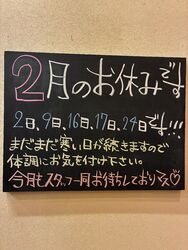 2月のお休みです
2日、9日、16日、17日、24日です!!!
まだまだ寒い日が続きますので
体調にお気を付け下さい。
今月もスタッフ一同お待ちしております♡